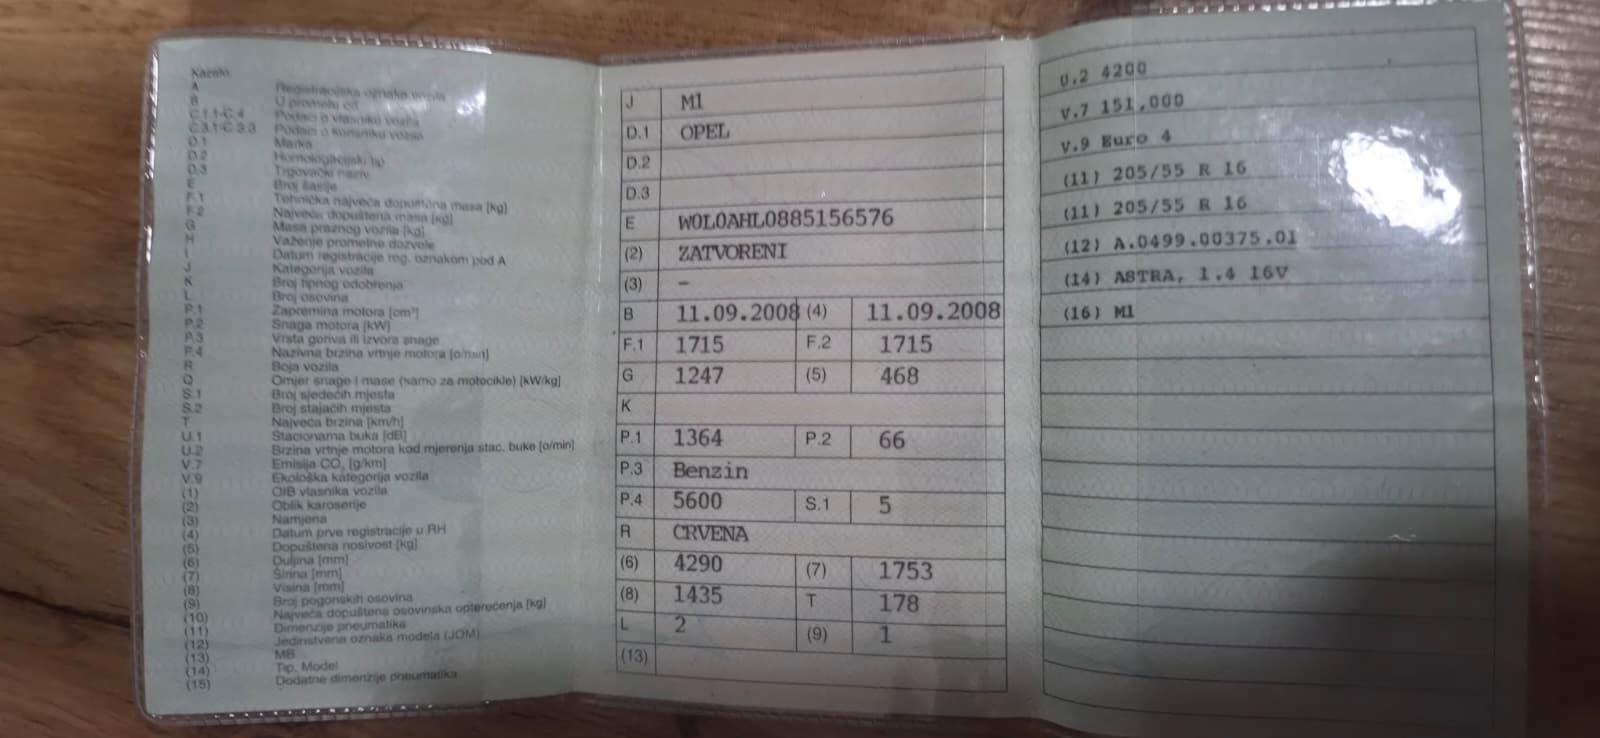 Kazalo
A Registracijska oznaka vozila
B U prometu od
C.1.1-C.4 Podaci o vlasniku vozila
C.3.1-C.3.3 Podaci o korisniku vozila
D.1 Marka
D.2 Homologacijski tip
D.3 Trgovački naziv
E Broj šasije
F.1 Tehnička najveća dopuštena masa [kg]
F.2 Najveća dopuštena masa [kg]
G Masa praznog vozila [kg]
H Važenje prometne dozvole
I Datum registracije reg. oznakom pod A
J Kategorija vozila
K Broj tipnog odobrenja
L Broj osovina
P.1 Zapremina motora [cm³]
P.2 Snaga motora [kW]
P.3 Vrsta goriva ili izvora snage
P.4 Nazivna brzina vrtnje motora [o/min]
R Boja vozila
Q Omjer snage i mase (samo za motocikle) [kW/kg]
S.1 Broj sjedećih mjesta
S.2 Broj stajaćih mjesta
T Najveća brzina [km/h]
U.1 Stacionarna buka [dB]
U.2 Brzina vrtnje motora kod mjerenja stac. buke [o/min]
V.7 Emisija CO₂ [g/km]
V.9 Ekološka kategorija vozila
(1) OIB vlasnika vozila
(2) Oblik karoserije
(3) Namjena
(4) Datum prve registracije u RH
(5) Dopuštena nosivost [kg]
(6) Duljina [mm]
(7) Širina [mm]
(8) Visina [mm]
(9) Broj pogonskih osovina
(10) Najveća dopuštena osovinska opterećenja [kg]
(11) Dimenzije pneumatika
(12) Jedinstvena oznaka modela (JOM)
(13) MB
(14) Tip, Model
(15) Dodatne dimenzije pneumatika
J M1
D.1 OPEL
D.2
D.3
E W0L0AHL0885156576
(2) ZATVORENI
(3) -
B 11.09.2008 (4) 11.09.2008
F.1 1715 F.2 1715
G 1247 (5) 468
K
P.1 1364 P.2 66
P.3 Benzin
P.4 5600 S.1 5
R CRVENA
(6) 4290 (7) 1753
(8) 1435 T 178
L 2 (9) 1
(13)
U.2 4200
V.7 151,000
V.9 Euro 4
(11) 205/55 R 16
(11) 205/55 R 16
(12) A.0499.00375.01
(14) ASTRA, 1.4 16V
(16) M1